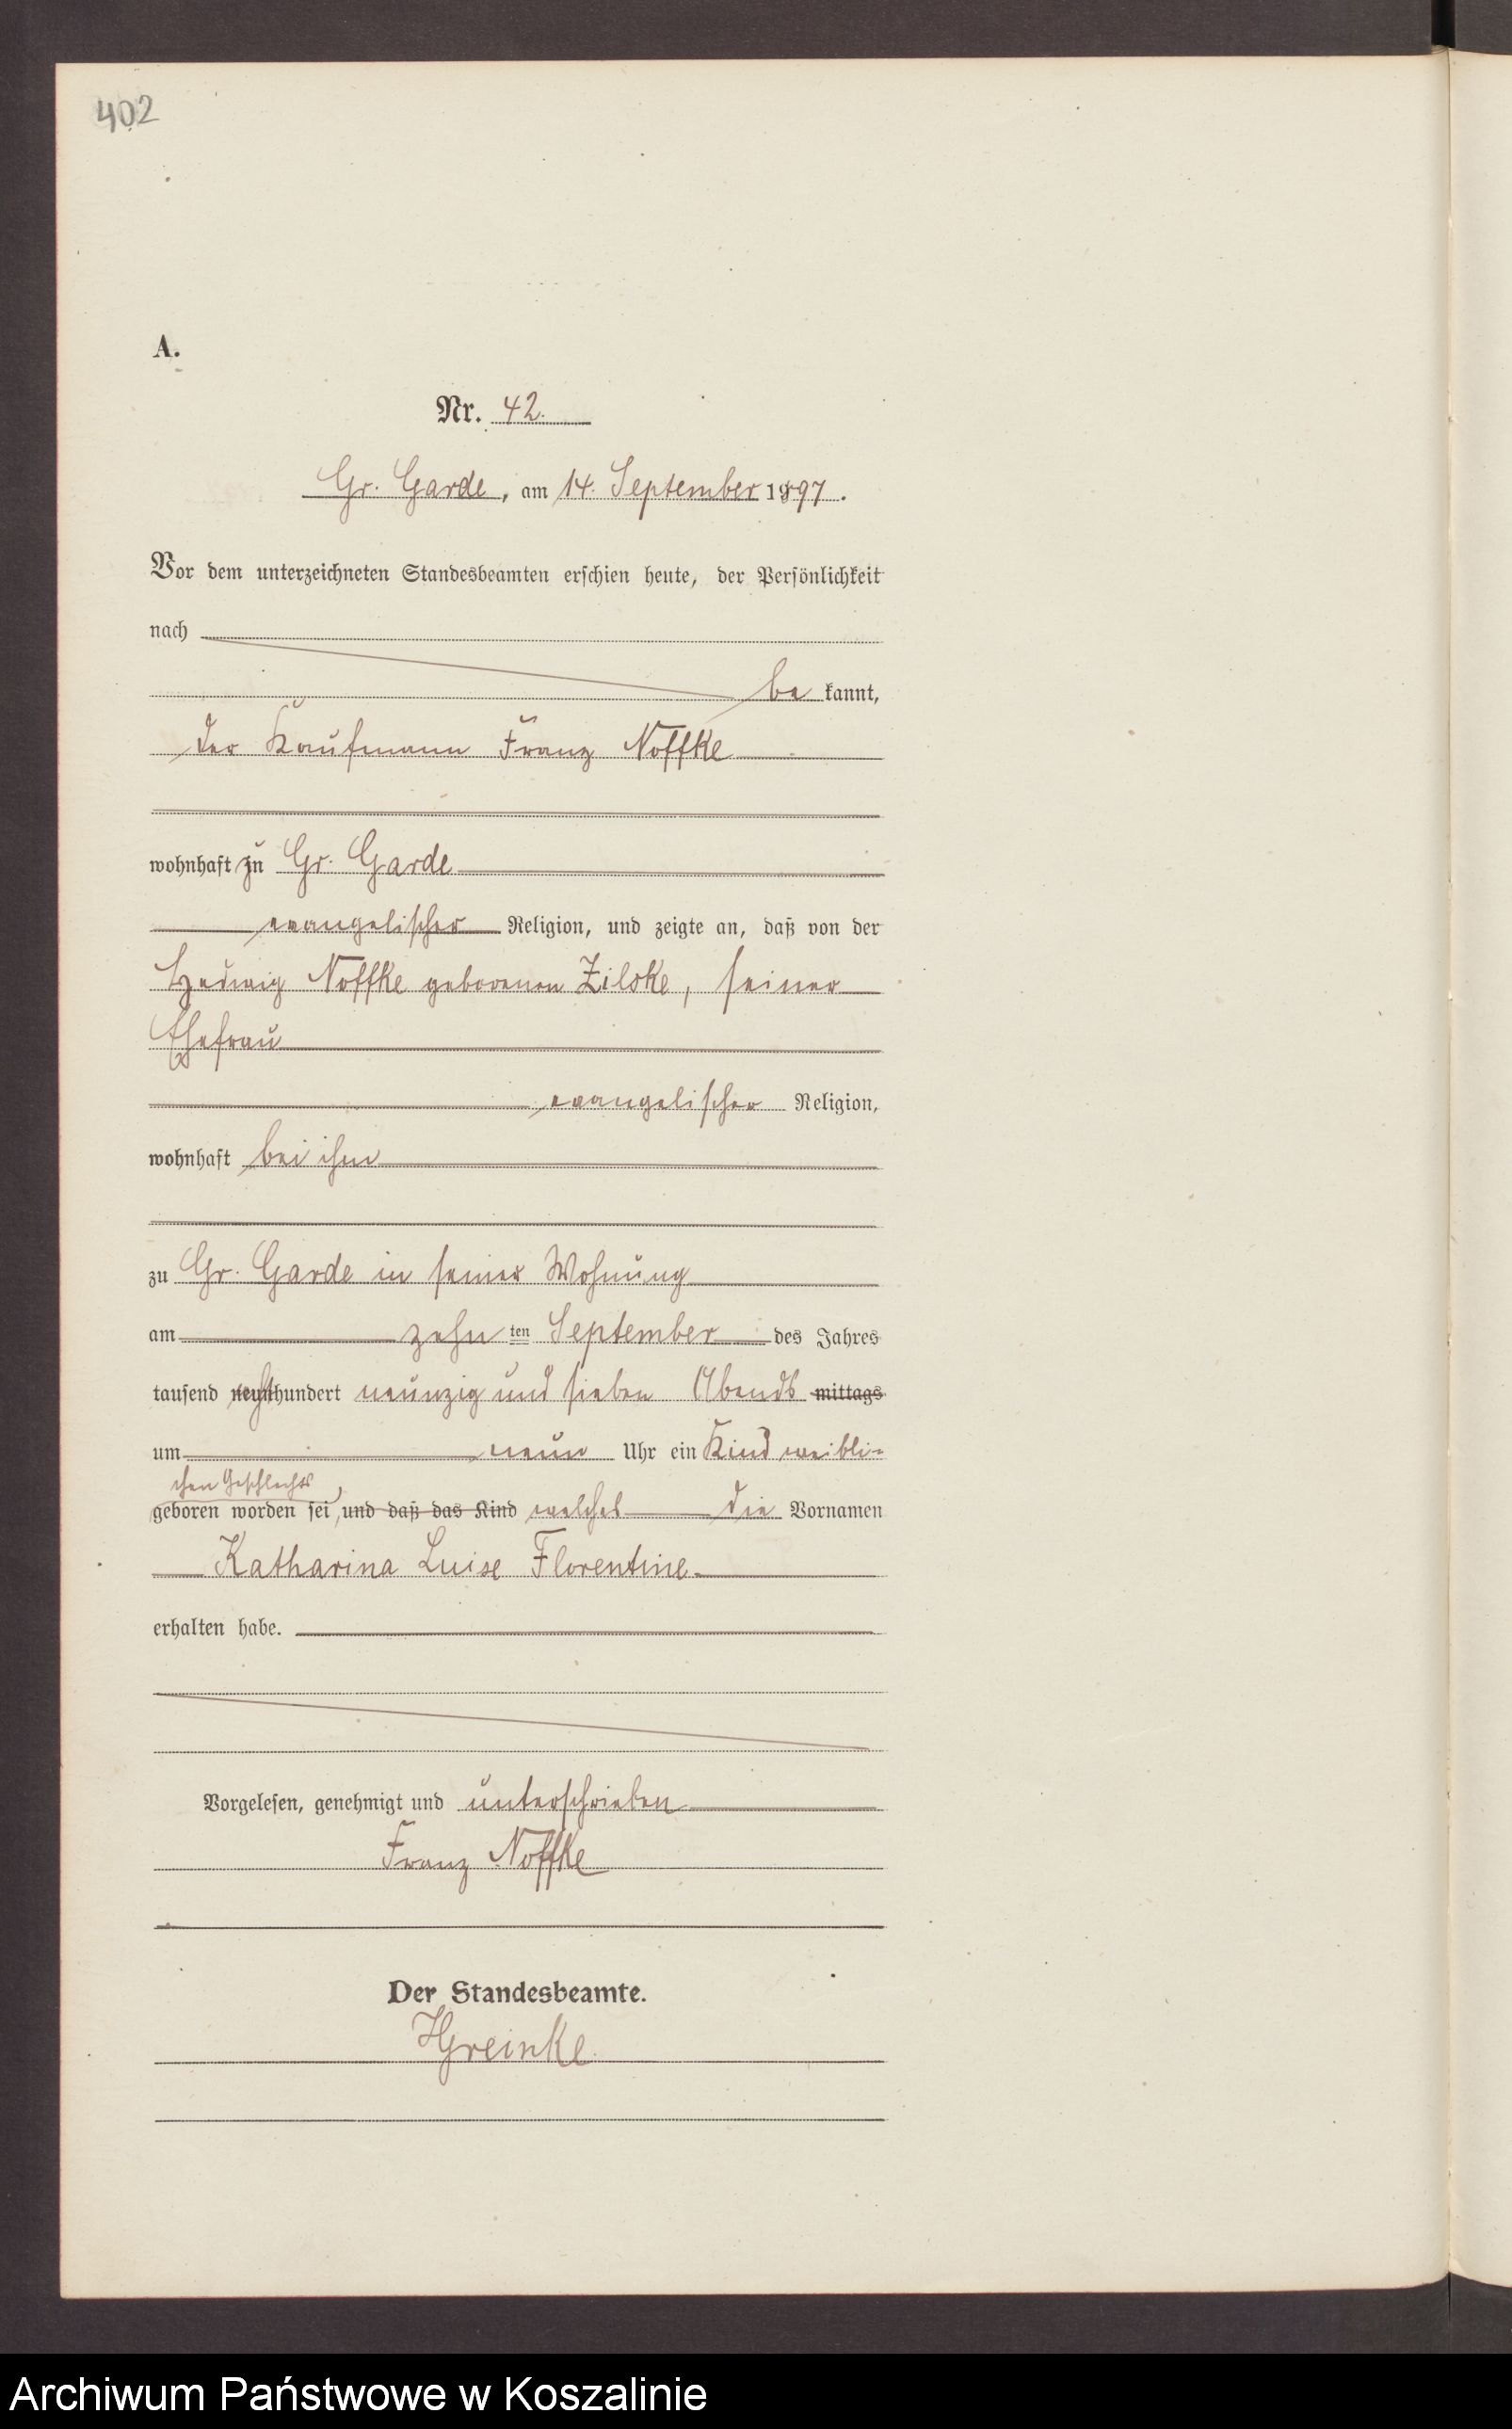 402
A.
Nr. 42.
Gr. Garde, am 14. September 1897.
Vor dem unterzeichneten Standesbeamten erschien heute, der Persönlichkeit
nach
bekannt,
der Kaufmann Franz Noffke
wohnhaft zu Gr. Garde
evangelischer Religion, und zeigte an, daß von der
Hedwig Noffke geborenen Zilske, seiner
Ehefrau
evangelischer Religion,
wohnhaft bei ihm
zu Gr. Garde in seiner Wohnung
am zehn ten September des Jahres
tausend achthundert neunzig und sieben Abends mittags
um neun Uhr ein Kind weibli-
chen Geschlechts
geboren worden sei, und daß das Kind welches die Vornamen
Katharina Luise Florentine
erhalten habe.
Vorgelesen, genehmigt und unterschrieben
Franz Noffke
Der Standesbeamte.
HGreinke
Archiwum Państwowe w Koszalinie